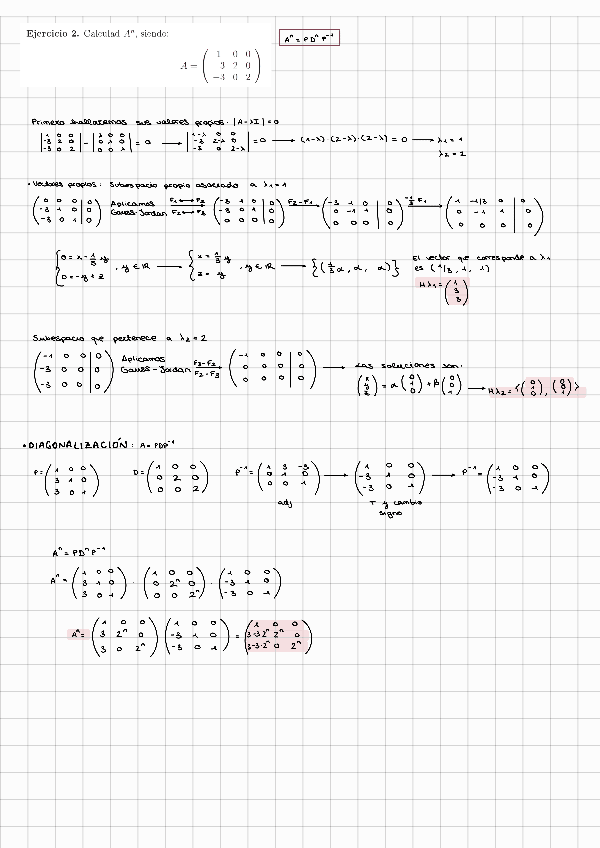 Ejercicio 2. Calculad Aⁿ, siendo:
Aⁿ = P Dⁿ P⁻¹
A = ( 1 0 0 ; -3 2 0 ; -3 0 2 )
Primero hallaremos sus valores propios. |A-λI| = 0
| 1 0 0 ; -3 2 0 ; -3 0 2 | - | λ 0 0 ; 0 λ 0 ; 0 0 λ | = 0 → | 1-λ 0 0 ; -3 2-λ 0 ; -3 0 2-λ | = 0 → (1-λ)·(2-λ)·(2-λ) = 0 → λ₁ = 1
λ₂ = 2
• Vectores propios: Subespacio propio asociado a λ₁ = 1
( 0 0 0 | 0 ; -3 1 0 | 0 ; -3 0 1 | 0 ) Aplicamos Gauss-Jordan F₁↔F₂ F₂↔F₃ ( -3 1 0 | 0 ; -3 0 1 | 0 ; 0 0 0 | 0 ) F₂-F₁ → ( -3 1 0 | 0 ; 0 -1 1 | 0 ; 0 0 0 | 0 ) -1/3 F₁ → ( 1 -1/3 0 | 0 ; 0 -1 1 | 0 ; 0 0 0 | 0 )
{ 0 = x - 1/3 y ; 0 = -y + z , y ∈ ℝ → { x = 1/3 y ; z = y , y ∈ ℝ → { ( 1/3 α, α, α ) } El vector que corresponde a λ₁
es (1/3, 1, 1)
Hλ₁ = ( 1 ; 3 ; 3 )
Subespacio que pertenece a λ₂ = 2
( -1 0 0 | 0 ; -3 0 0 | 0 ; -3 0 0 | 0 ) Aplicamos Gauss-Jordan F₃-F₂ F₂-F₃ → ( -1 0 0 | 0 ; 0 0 0 | 0 ; 0 0 0 | 0 ) → Las soluciones son:
( x ; y ; z ) = α ( 0 ; 1 ; 0 ) + β ( 0 ; 0 ; 1 ) → Hλ₂ = { ( 0 ; 1 ; 0 ), ( 0 ; 0 ; 1 ) }
• DIAGONALIZACIÓN: A = PDP⁻¹
P = ( 1 0 0 ; 3 1 0 ; 3 0 1 ) D = ( 1 0 0 ; 0 2 0 ; 0 0 2 ) P⁻¹ = ( 1 3 -3 ; 0 1 0 ; 0 0 1 ) → ( 1 0 0 ; -3 1 0 ; -3 0 1 ) → P⁻¹ = ( 1 0 0 ; -3 1 0 ; -3 0 1 )
adj T y cambio
signo
Aⁿ = P Dⁿ P⁻¹
Aⁿ = ( 1 0 0 ; 3 1 0 ; 3 0 1 ) · ( 1 0 0 ; 0 2ⁿ 0 ; 0 0 2ⁿ ) · ( 1 0 0 ; -3 1 0 ; -3 0 1 )
Aⁿ = ( 1 0 0 ; 3 2ⁿ 0 ; 3 0 2ⁿ ) ( 1 0 0 ; -3 1 0 ; -3 0 1 ) = ( 1 0 0 ; 3-3·2ⁿ 2ⁿ 0 ; 3-3·2ⁿ 0 2ⁿ )